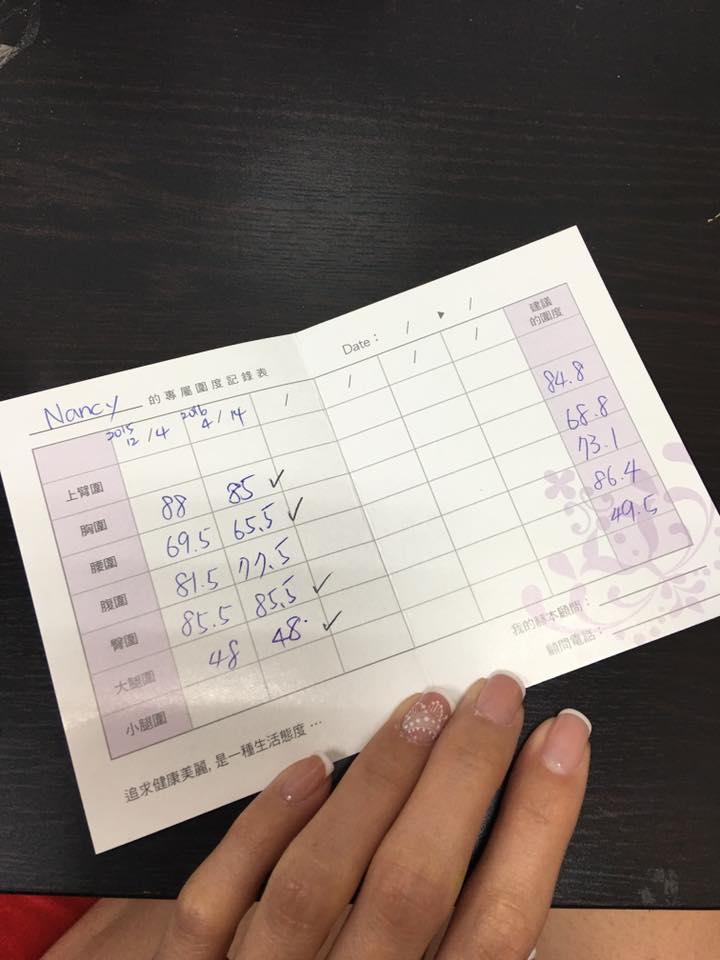 Nancy 的專屬圍度記錄表 Date： / ▸ /
2015 12/4 2016 4/14 / / / / 建議的圍度
上臂圍
胸圍 88 85 ✓ 84.8
腰圍 69.5 65.5 ✓ 68.8
腹圍 81.5 77.5 73.1
臀圍 85.5 85.5 ✓ 86.4
大腿圍 48 48 ✓ 49.5
小腿圍
我的基本顧問：
顧問電話：
追求健康美麗, 是一種生活態度 …